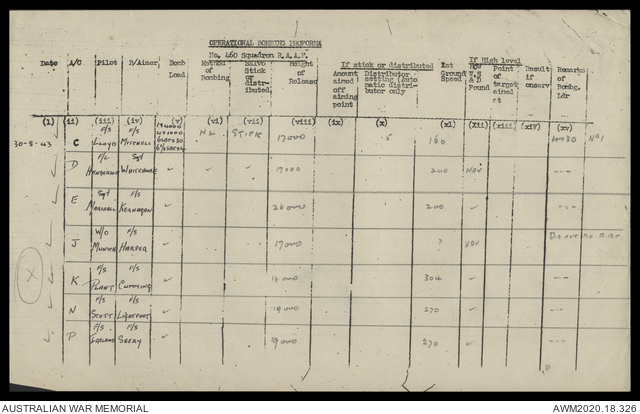 OPERATIONAL BOMBING PROFORMA
No. 460 Squadron R.A.A.F.
Date A/C. Pilot B/Aimer Bomb Load Method of Bombing Salvo Stick or distributed. Height of Release If stick or distributed Amount aimed off aiming point Distributor setting (Auto matic distributor only Est Ground Speed If High level How W.S & D Found Point of target aimed at Result if observ Remarks of Bombg. Ldr
(i) (ii) (iii) (iv) (v) (vi) (vii) (viii) (ix) (x) (xi) (xii) (xiii) (xiv) (xv)
30-8-43 C F/S LLOYD F/S MITCHELL NL STICK 17000 5 160
D F/L HENDERSON Sgt WHITEHOUSE 17000 200 NAV ---
E Sgt F/S 20000 200 ---
J W/O F/S HARPER 17000 ? NAV DID NOT
X
K F/S PLANT F/S CUMMING 18000 304 ---
N F/S SCOTT F/S LIGHTFOOT 19000 270
P F/S F/S SEERY 19000 270 ---
AUSTRALIAN WAR MEMORIAL
AWM2020.18.326